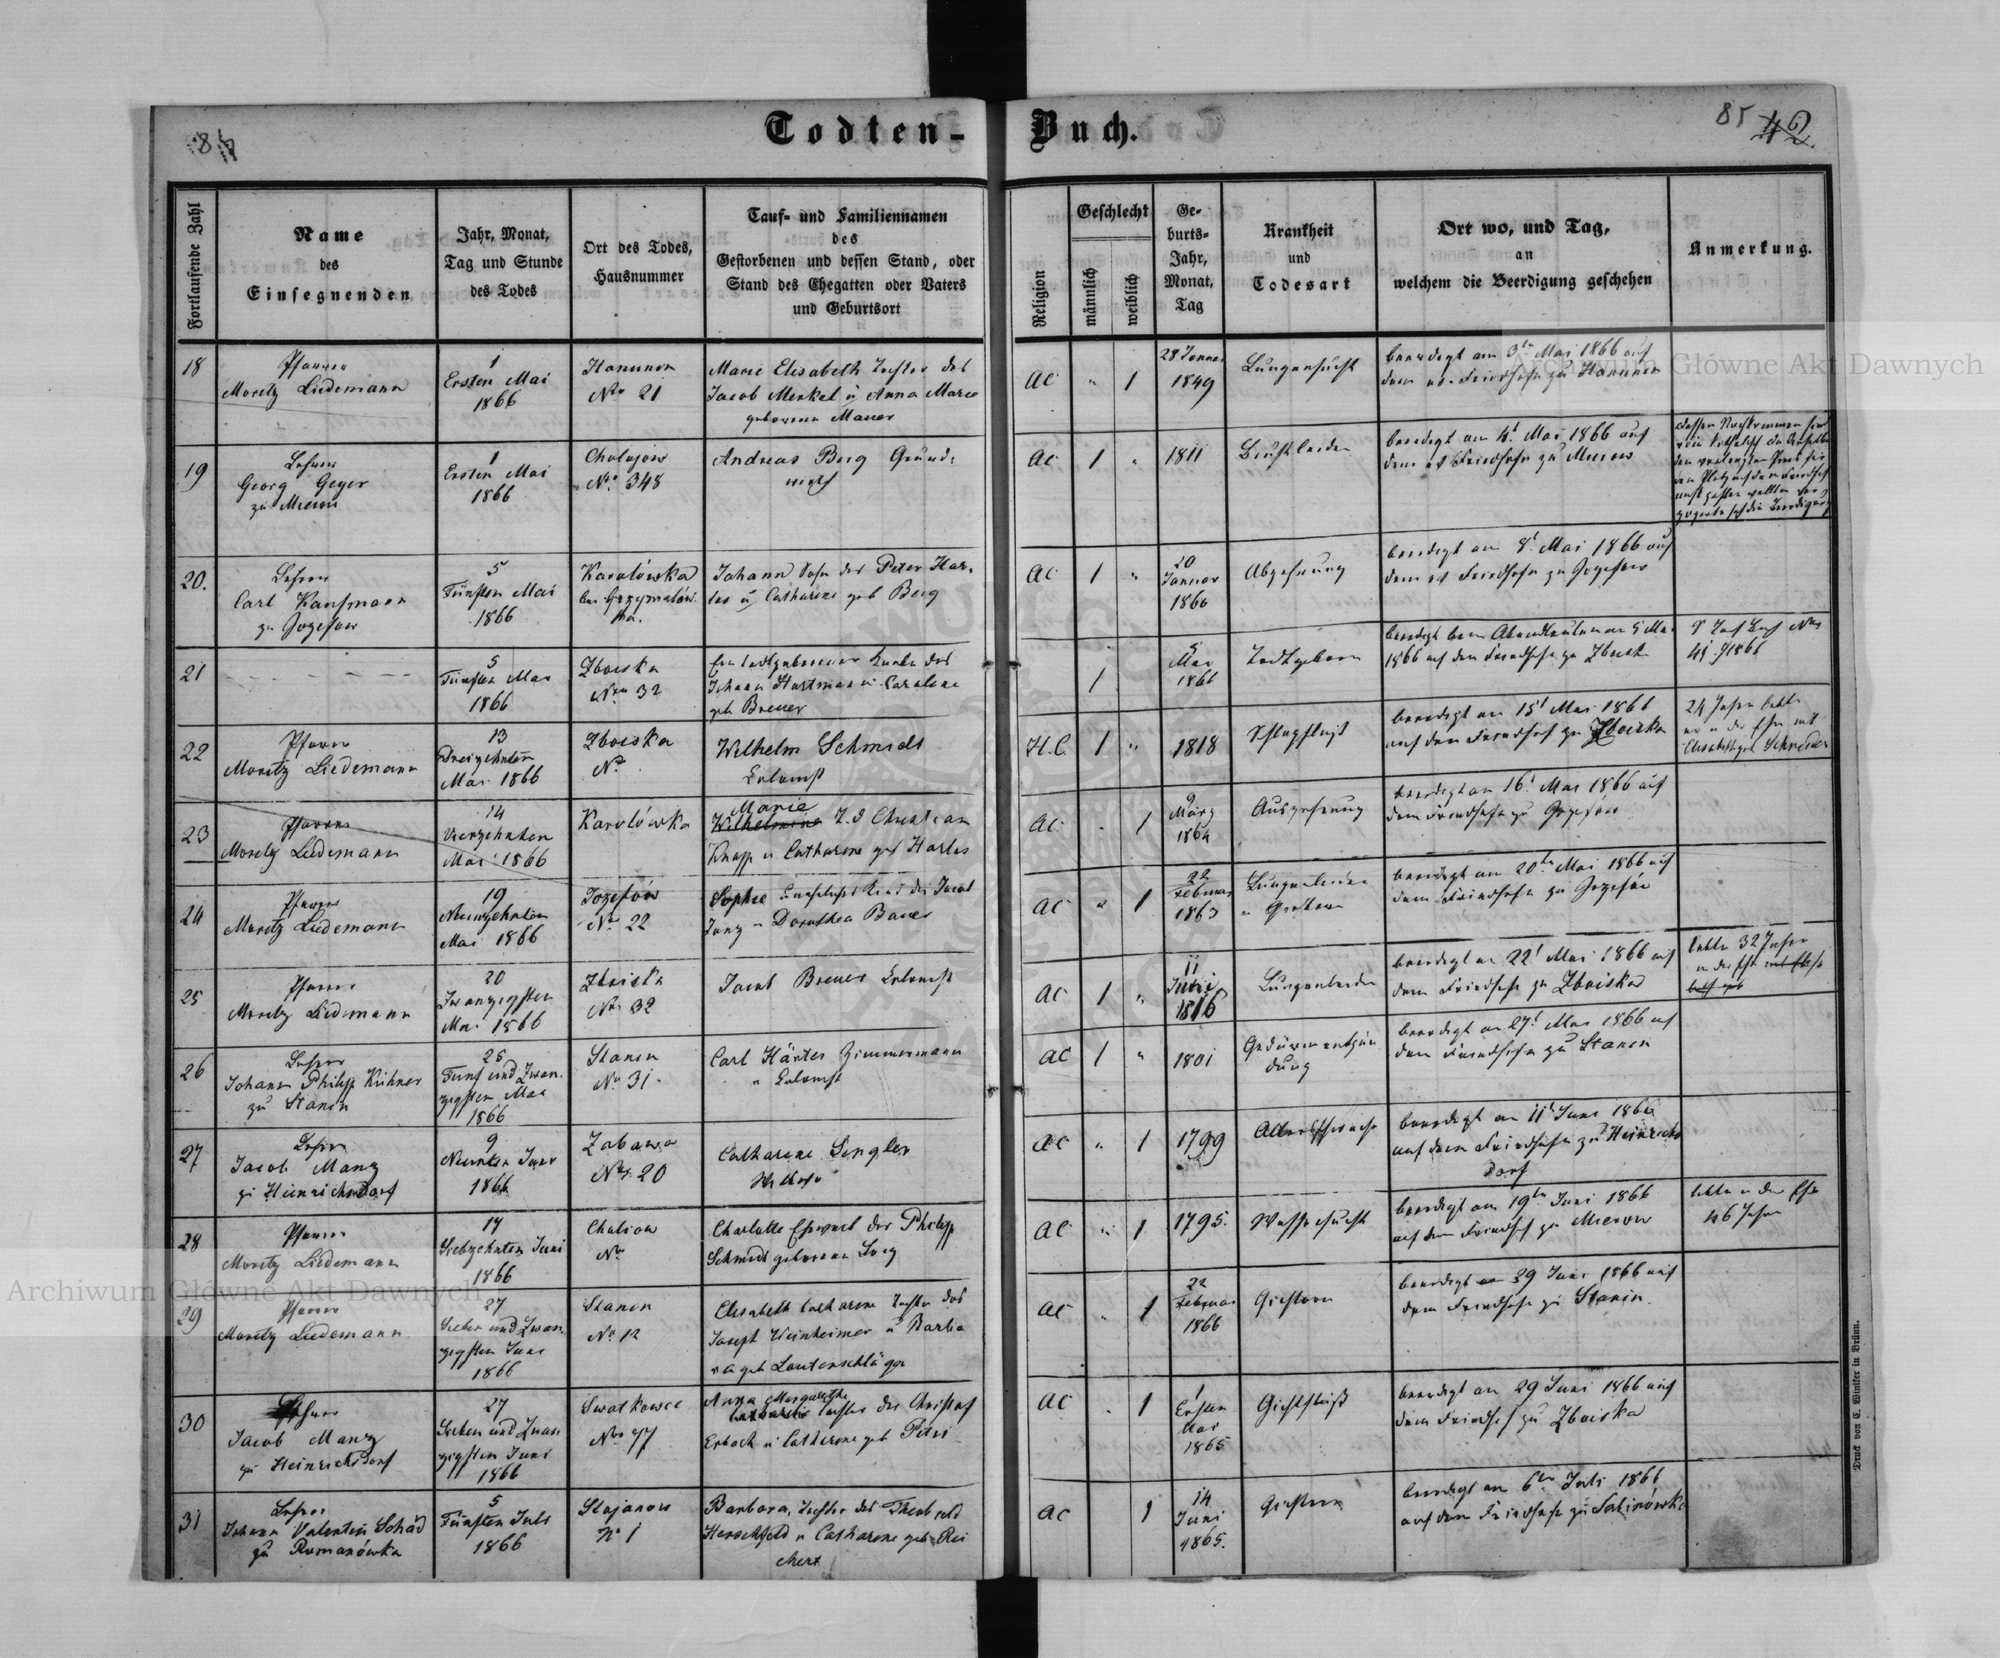 84
Todten-Buch.
85 42.
Fortlaufende Zahl
Name
des
Einsegnenden
Jahr, Monat,
Tag und Stunde
des Todes
Ort des Todes,
Hausnummer
Tauf- und Familiennamen
des
Gestorbenen und dessen Stand, oder
Stand des Ehegatten oder Vaters
und Geburtsort
Religion
Geschlecht
männlich
weiblich
Ge-
burts-
Jahr,
Monat,
Tag
Krankheit
und
Todesart
Ort wo, und Tag,
an
welchem die Beerdigung geschehen
Anmerkung.
18
Pfarrer
Moritz Liedemann
1
Ersten Mai
1866
Hanunin
Nro 21
Marie Elisabeth Tochter des
Jacob Merkel u Anna Marie
geborenen Mauer
AC " 1
28 Jenner
1849
Lungensucht
beerdigt am 3ten Mai 1866 auf
dem ev. Friedhofe zu Hanunin
19
Lehrer
Georg Geyer
zu Mierow
1
Ersten Mai
1866
Cholojow
No. 348
Andreas Berg Grund-
wirth
AC 1 "
1811
Brustleiden
beerdigt am 4t Mai 1866 auf
dem ev Friedhofe zu Mierow
20.
Lehrer
Carl Kaufmann
zu Jozefow
5
Fünften Mai
1866
Karolówka
Johann Sohn des Peter Har-
les u Catharine geb Berg
AC 1 "
20
Jannar
1866
Abzehrung
beerdigt am 8t Mai 1866 auf
dem ev Friedhofe zu Jozefow
21
5
Fünften Mai
1866
Zboiska
Nro 32
Ein todtgeborener Knabe des
Johann Hartman u Caroline
geb Breuer
1
5
Mai
1866
Todtgeboren
1866 auf dem Friedhofe zu Zboiska
22
Pfarrer
Moritz Liedemann
13
Dreizehnten
Mai 1866
Zboiska
No
Wilhelm Schmidt
H.C. 1 "
1818
beerdigt am 15t Mai 1866
auf dem Friedhof zu Zboiska
24 Jahre lebte
er in der Ehe mit
23
Pfarrer
Moritz Liedemann
14
Vierzehnten
Mai 1866
Karolówka
Marie
Wilhelmine T.d Christian
Knapp u Catharine geb Harles
AC " 1
9
März
1864
Auszehrung
beerdigt am 16t Mai 1866 auf
dem Friedhofe zu Jozefow
24
Pfarrer
Moritz Liedemann
19
Neunzehnten
Mai 1866
Jozefów
No 22
Sophie uneheliches Kind des Jacob
Jung u Dorothea Bauer
AC " 1
22
Februar
1863
Lungenleiden
beerdigt am 20ten Mai 1866 auf
dem Friedhofe zu Jozefów
25
Pfarrer
Moritz Liedemann
20
Zwanzigsten
Mai 1866
Zboiska
No 32
Jacob Breuer
AC 1 "
11
Juni
1816
Lungenleiden
beerdigt am 22t Mai 1866 auf
dem Friedhofe zu Zboiska
lebte 32 Jahre
in der Ehe
26
Lehrer
Johann Philipp Kühner
zu Stanin
25
Funf und Zwan-
zigsten Mai
1866
Stanin
No 31.
Carl Härter Zimmermann
AC 1 "
1801
Gedärmentzün
dung
beerdigt am 27t Mai 1866 auf
dem Friedhofe zu Stanin
27
Lehrer
Jacob Manz
zu Heinrichsdorf
9
Neunten Juni
1866
Zabawa
Nro 20
Catharine Sengler
Wittwe
AC " 1
1799
Altersschwäche
beerdigt am 11t Juni 1866
auf dem Friedhofe zu Heinrichs
dorf
28
Pfarrer
Moritz Liedemann
17
Siebzehnten Juni
1866
Chaliow
No
Charlotte Eheweib des Philipp
Schmidt geborenen
AC " 1
1795.
Wassersucht
beerdigt am 19ten Juni 1866
auf dem Friedhof zu Mierow
lebte in der Ehe
46 Jahre
29
Pfarrer
Moritz Liedemann
27
Sieben und Zwan-
zigsten Juni
1866
Stanin
No 12
Elisabeth Catharine Tochter des
Joseph Weinheimer u Barba
ra geb Lautenschläger
AC " 1
22
Februar
1866
beerdigt am 29 Juni 1866 auf
dem Friedhofe zu Stanin.
30
Lehrer
Jacob Manz
zu Heinrichsdorf
27
Sieben und Zwan
zigsten Juni
1866
Swatkowce
Nro 77
Anna Margarethe
Tochter des Christof
Erbach u Catharine geb Petri
AC " 1
1
Ersten
Mai
1865
beerdigt am 29 Juni 1866 auf
dem Friedhof zu Zboiska
31
Lehrer
Johann Valentin Schäd
zu Romanówka
5
Fünften Juli
1866
Stojanow
No 1
Barbara, Tochter des Theobald
Herschfeld u Catharine geb Rei
chert
AC 1
14
Juni
1865.
beerdigt am 6ten Juli 1866
auf dem Friedhofe zu Sabinówka
Druck von C. Winiker in Brünn.
Archiwum Główne Akt Dawnych
Archiwum Główne Akt Dawnych